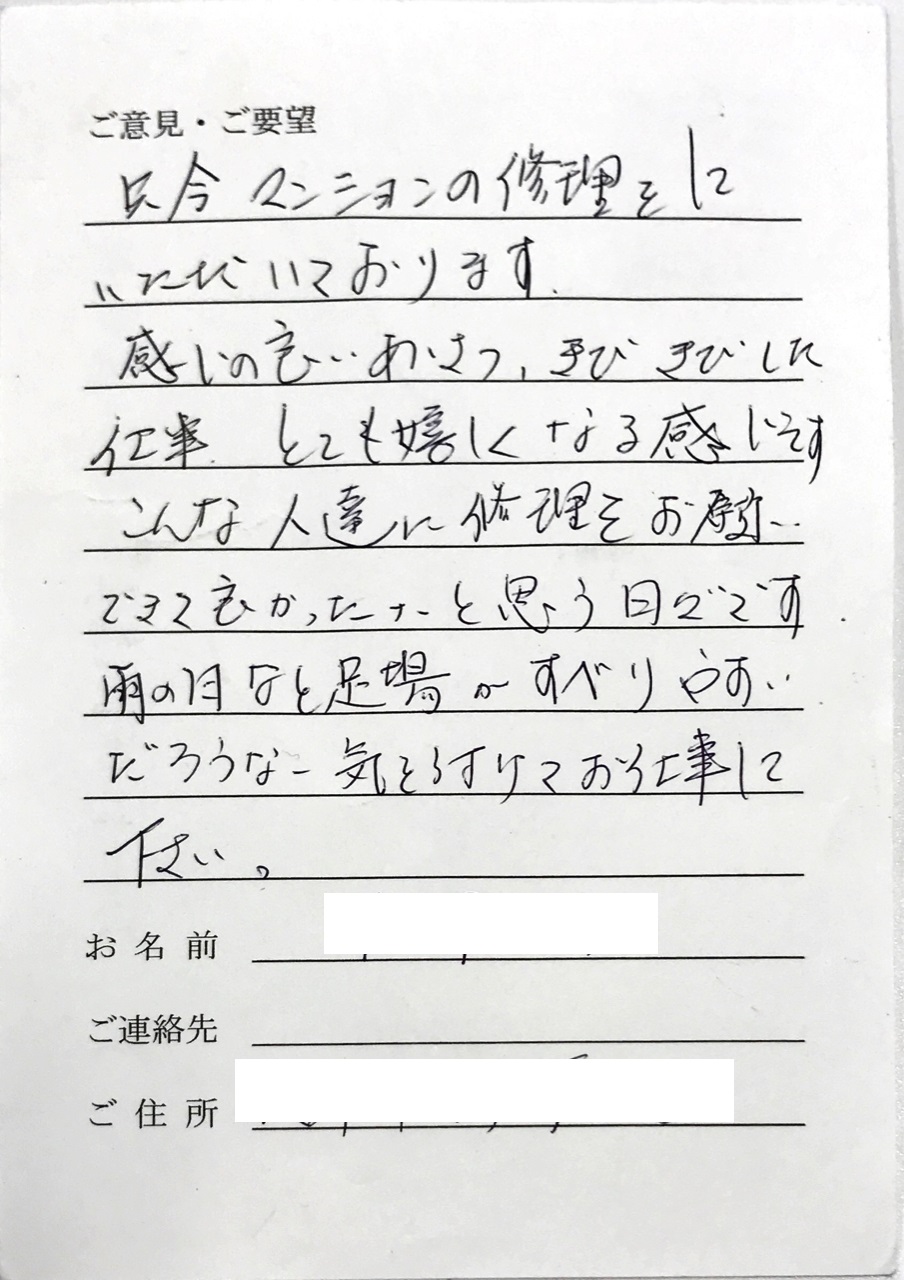 ご意見・ご要望
只今マンションの修理をして
いただいております.
感じの良いあいさつ、きびきびした
仕事. とても嬉しくなる感じです
こんな人達に修理をお願い
できて良かったナーと思う日々です
雨の日など足場がすべりやすい
だろうなー気を付けてお仕事して
下さい。
お名前
ご連絡先
ご住所